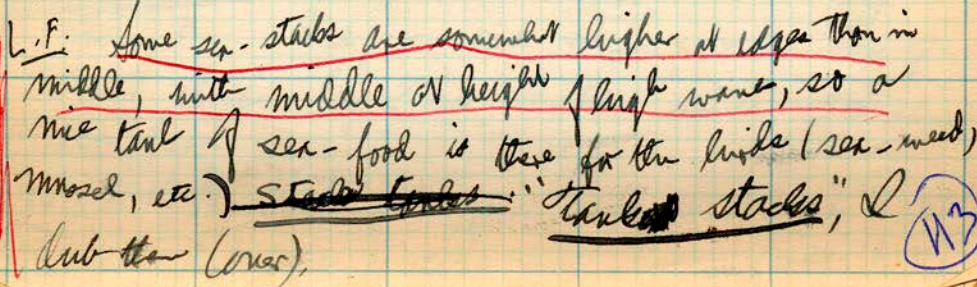 L.F. Some sea-stacks are somewhat higher at edges than in
middle, with middle at height of high wave, so a
nice tank of sea-food is there for the birds (sea-weed,
mussel, etc.) Stack tanks: "Tank stacks", I
dub them (over).
113